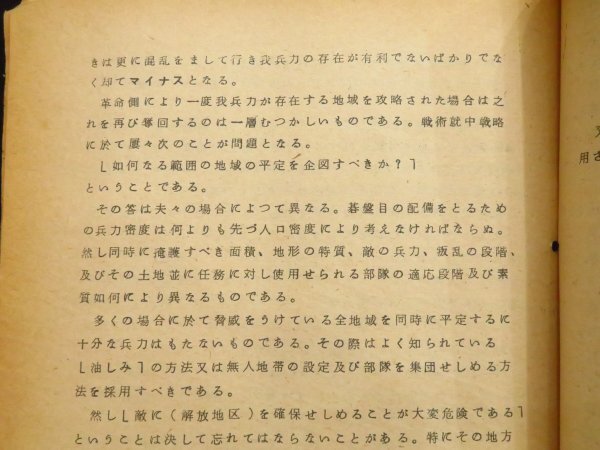 きは更に混乱をまして行き我兵力の存在が有利でないばかりでな
く却てマイナスとなる。
革命側により一度我兵力が存在する地域を攻略された場合は之
れを再び奪回するのは一層むつかしいものである。戦術就中戦略
に於て屢々次のことが問題となる。
「如何なる範囲の地域の平定を企図すべきか?」
ということである。
その答は夫々の場合によつて異なる。碁盤目の配備をとるため
の兵力密度は何よりも先づ人口密度により考えなければならぬ。
然し同時に掩護すべき面積、地形の特質、敵の兵力、叛乱の段階、
及びその土地並に任務に対し使用せられる部隊の適応段階及び素
質如何により異なるものである。
多くの場合に於て脅威をうけている全地域を同時に平定するに
十分な兵力はもたないものである。その際はよく知られている
「油しみ」の方法又は無人地帯の設定及び部隊を集団せしめる方
法を採用すべきである。
然し「敵に(解放地区)を確保せしめることが大変危険である」
ということは決して忘れてはならないことがある。特にその地方
用さ